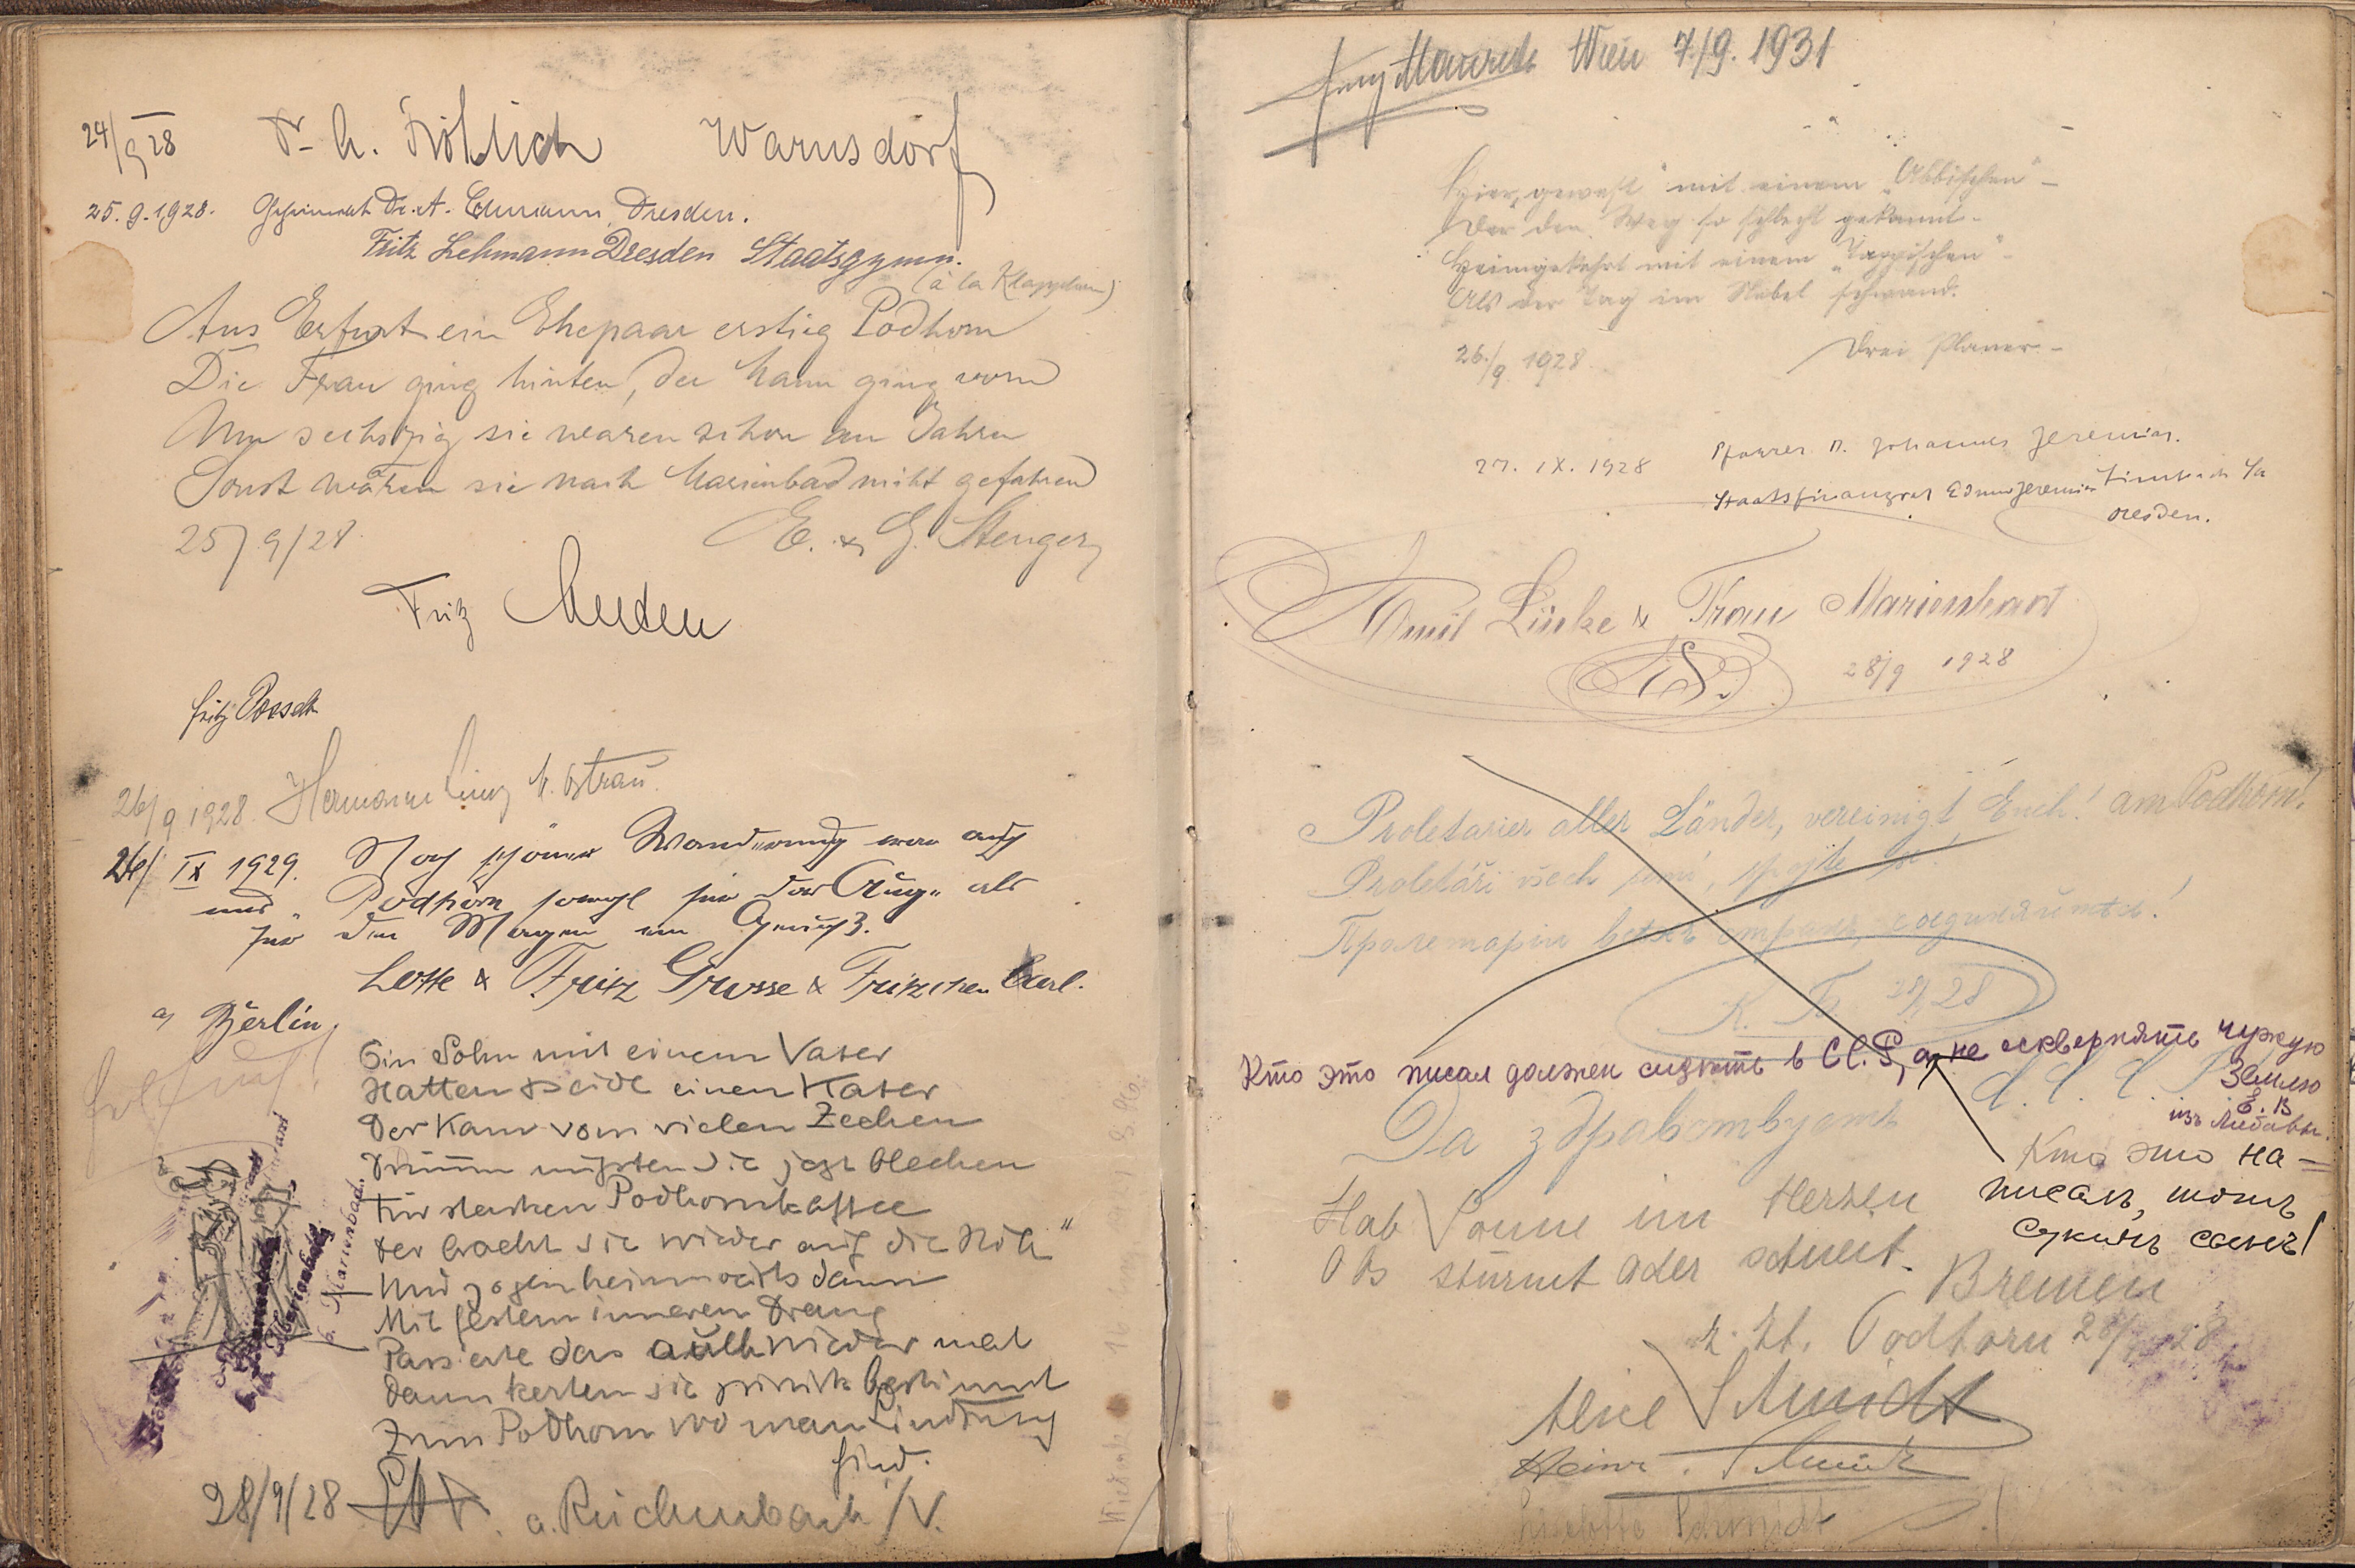 24/9 28 Dr. A. Fröhlich Warnsdorf
25.9.1928. Geheimrat Dr. A. Lehmann, Dresden.
Fritz Lehmann Dresden Staatsgymn.
(à la Klapphorn)
Aus Erfurt ein Ehepaar erstieg Podhorn
Die Frau ging hinten, der Mann ging vorn
Um sechszig sie waren schon an Jahren
Sonst wären sie nach Marienbad nicht gefahren
25/9/28 E. & G. Stenger
Fritz
Fritz Poesch
26/9 1928. Hermann M. Ostrau.
26/IX 1929. Nach schöner Wanderung war auch
uns Podhorn sowohl für das Auge als
für den Magen ein Genuß.
Lotte & Fritz Grosse & Fritzchen
a Berlin
Ein Sohn mit einem Vater
Hatten beide einen Kater
Der kam vom vielen Zechen
Drum mußten sie jetzt blechen
Für starken Podhornkaffee
Der bracht sie wieder auf die Höh"
Und zogen heimwärts dann
Mit festem inneren Drang
Passierte das auch wieder mal
Dann kerten sie zurück bestimmt
Zum Podhorn wo man Lindrung
find.
28/9/28 a. Reichenbach /V.
b. Marienbad.
Wien 7./9. 1931
Hier „gewest" mit einem „Abbischen" –
Der den Weg so schlecht gekannt –
Heimgekehrt mit einem „Tappischen" –
Als der Tag im Nebel schwand.
26./9 1928 Drei Planer. –
27. IX. 1928 Pfarrer D. Johannes Jeremias.
Limbach S/a
Staatsfinanzrat Edmund Jeremias
Dresden.
Emil Linke & Frau Marienbad
28/9 1928
Proletarier aller Länder, vereinigt Euch! am Podhorn!
Proletáři všech zemí, spojte se!
Пролетаріи всехъ странъ, соединяйтесь!
К. Б. 28/9 28
Кто это писал должен сидѣть в С.С.Р, а не осквернять чужую
землю
Е. В
изъ Либавы.
Да здравствуетъ С. С. С. Р
Кто это на-
писалъ, тотъ
сукинъ сынъ!
Hab Sonne im Herzen
Obs stürmt oder schneit.
Bremen
z. Zt. Podhorn 28/9 28
Schmidt
Heinr. Schmidt
Liselotte Schmidt